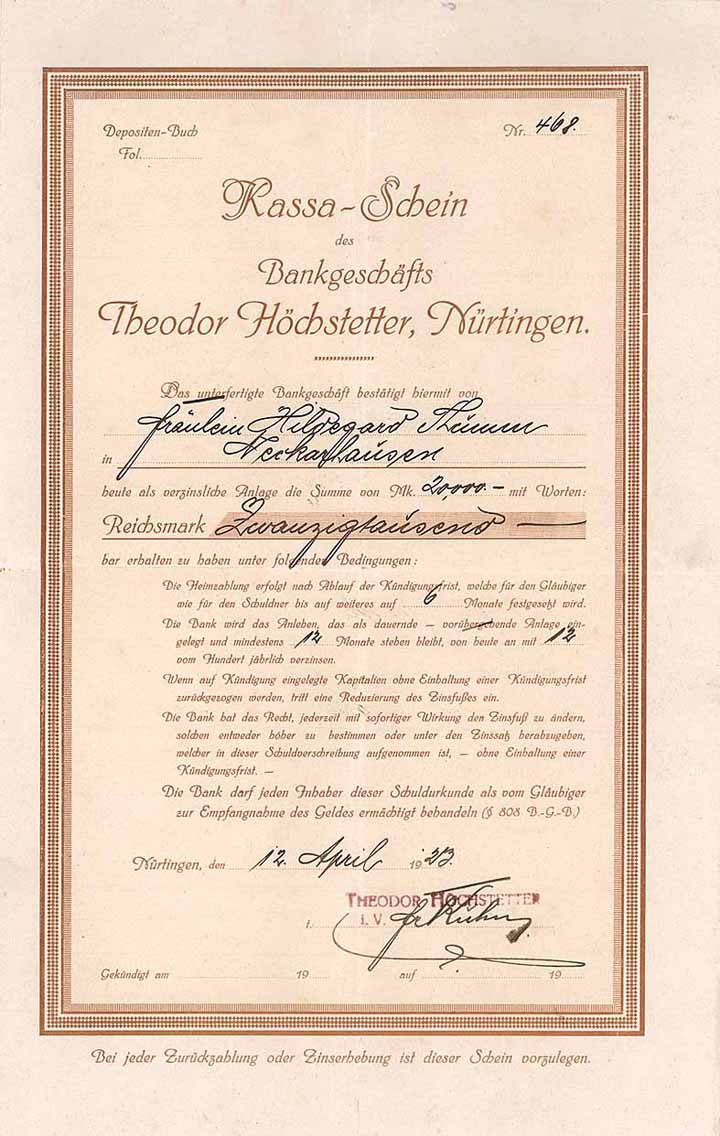 Depositen-Buch Nr. 468.
Fol.
Kassa-Schein
des
Bankgeschäfts
Theodor Höchstetter, Nürtingen.
Das unterfertigte Bankgeschäft bestätigt hiermit von
Fräulein Hildegard Thumm
in Neckarhausen
heute als verzinsliche Anlage die Summe von Mk. 20,000.- mit Worten:
Reichsmark Zwanzigtausend —
bar erhalten zu haben unter folgenden Bedingungen:
Die Heimzahlung erfolgt nach Ablauf der Kündigungsfrist, welche für den Gläubiger
wie für den Schuldner bis auf weiteres auf 6 Monate festgesetzt wird.
Die Bank wird das Anlehen, das als dauernde — vorübergehende Anlage ein-
gelegt und mindestens 12 Monate stehen bleibt, von heute an mit 12
vom Hundert jährlich verzinsen.
Wenn auf Kündigung eingelegte Kapitalien ohne Einhaltung einer Kündigungsfrist
zurückgezogen werden, tritt eine Reduzierung des Zinsfußes ein.
Die Bank hat das Recht, jederzeit mit sofortiger Wirkung den Zinsfuß zu ändern,
solchen entweder höher zu bestimmen oder unter den Zinssatz herabzugeben,
welcher in dieser Schuldverschreibung aufgenommen ist, — ohne Einhaltung einer
Kündigungsfrist. —
Die Bank darf jeden Inhaber dieser Schuldurkunde als vom Gläubiger
zur Empfangnahme des Geldes ermächtigt behandeln (§ 808 B.-G.-B.)
Nürtingen, den 12. April 1923.
THEODOR HÖCHSTETTER
i. i. V.
Gekündigt am 19 auf 19
Bei jeder Zurückzahlung oder Zinserhebung ist dieser Schein vorzulegen.